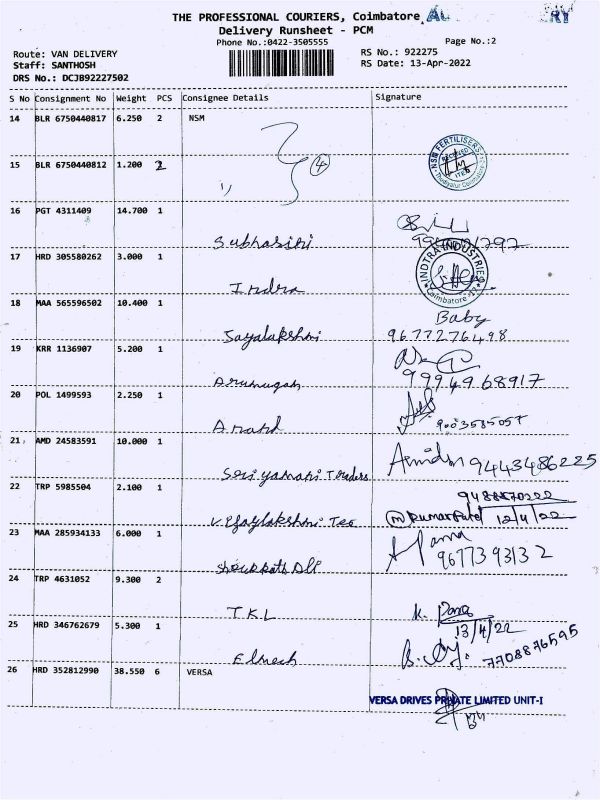 THE PROFESSIONAL COURIERS, Coimbatore
Delivery Runsheet - PCM
Phone No.:0422-3505555
Page No.:2
Route: VAN DELIVERY
RS No.: 922275
Staff: SANTHOSH
RS Date: 13-Apr-2022
DRS No.: DCJB92227502
S No Consignment No Weight PCS Consignee Details Signature
14 BLR 6750440817 6.250 2 NSM
15 BLR 6750440812 1.200 2
4
NSM FERTILISERS
RECEIVED
16 PGT 4311409 14.700 1
Subhasini
17 HRD 305580262 3.000 1
Indra
INDTRA INDUSTRIES
Coimbatore
18 MAA 565596502 10.400 1
Jayalakshmi
Baby
9677276498
19 KRR 1136907 5.200 1
Arumugam
9994968917
20 POL 1499593 2.250 1
Anand
9003585057
21 AMD 24583591 10.000 1
Sriyamani Traders
9443486225
22 TRP 5985504 2.100 1
Vijaylakshmi Tex
9488870222
12/4/22
23 MAA 285934133 6.000 1
Shoukkath Ali
9677393132
24 TRP 4631052 9.300 2
TKL
K.
13/4/22
25 HRD 346762679 5.300 1
Elmech
7708876595
26 HRD 352812990 38.550 6 VERSA
VERSA DRIVES PRIVATE LIMITED UNIT-I